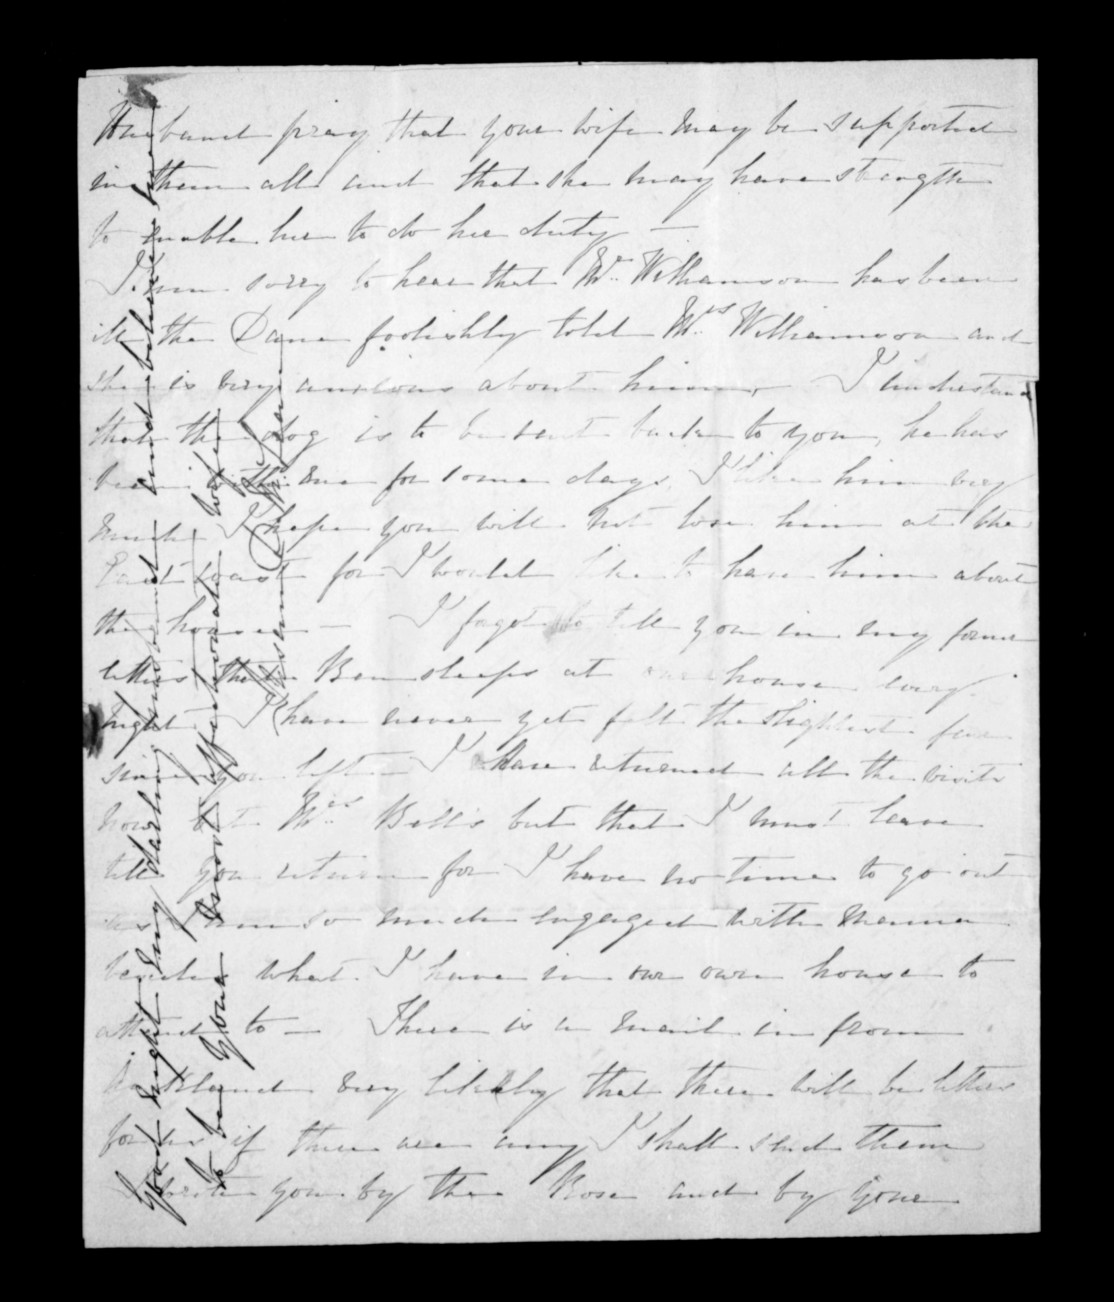 Husband pray that your wife may be supported
in them all and that she may have strength
to enable her to do her duty —
I am sorry to hear that Mr. Williamson has been
ill the Dane foolishly told Mrs. Williamson and
she is very anxious about him, I understand
that the dog is to be sent back to you, he has
been with me for some days, I like him very
much I hope you will not lose him at the
East Coast for I would like to have him about
the house — I forgot to tell you in my former
letters that Ben sleeps at our house every
night I have never yet felt the slightest fear
since you left — I have returned all the visits
now but Mrs. Bell's but that I must leave
till you return for I have no time to go out
as I am so much engaged with Mama
besides what I have in our own house to
attend to — There is a mail in from
Auckland very likely that there will be letters
for us if there are any I shall send them
you by the Rose and by your
Good night my darling and believe me
to be your most affectionate wife
Susan